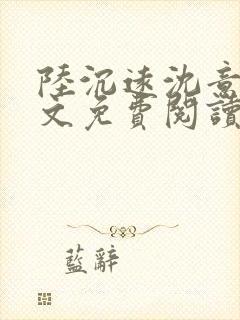 陸沉遠沈意
文免費閱讀
藍辭